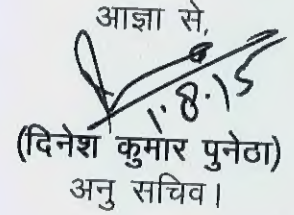 आज्ञा से,
1.8.15
(दिनेश कुमार पुनेठा)
अनु सचिव।